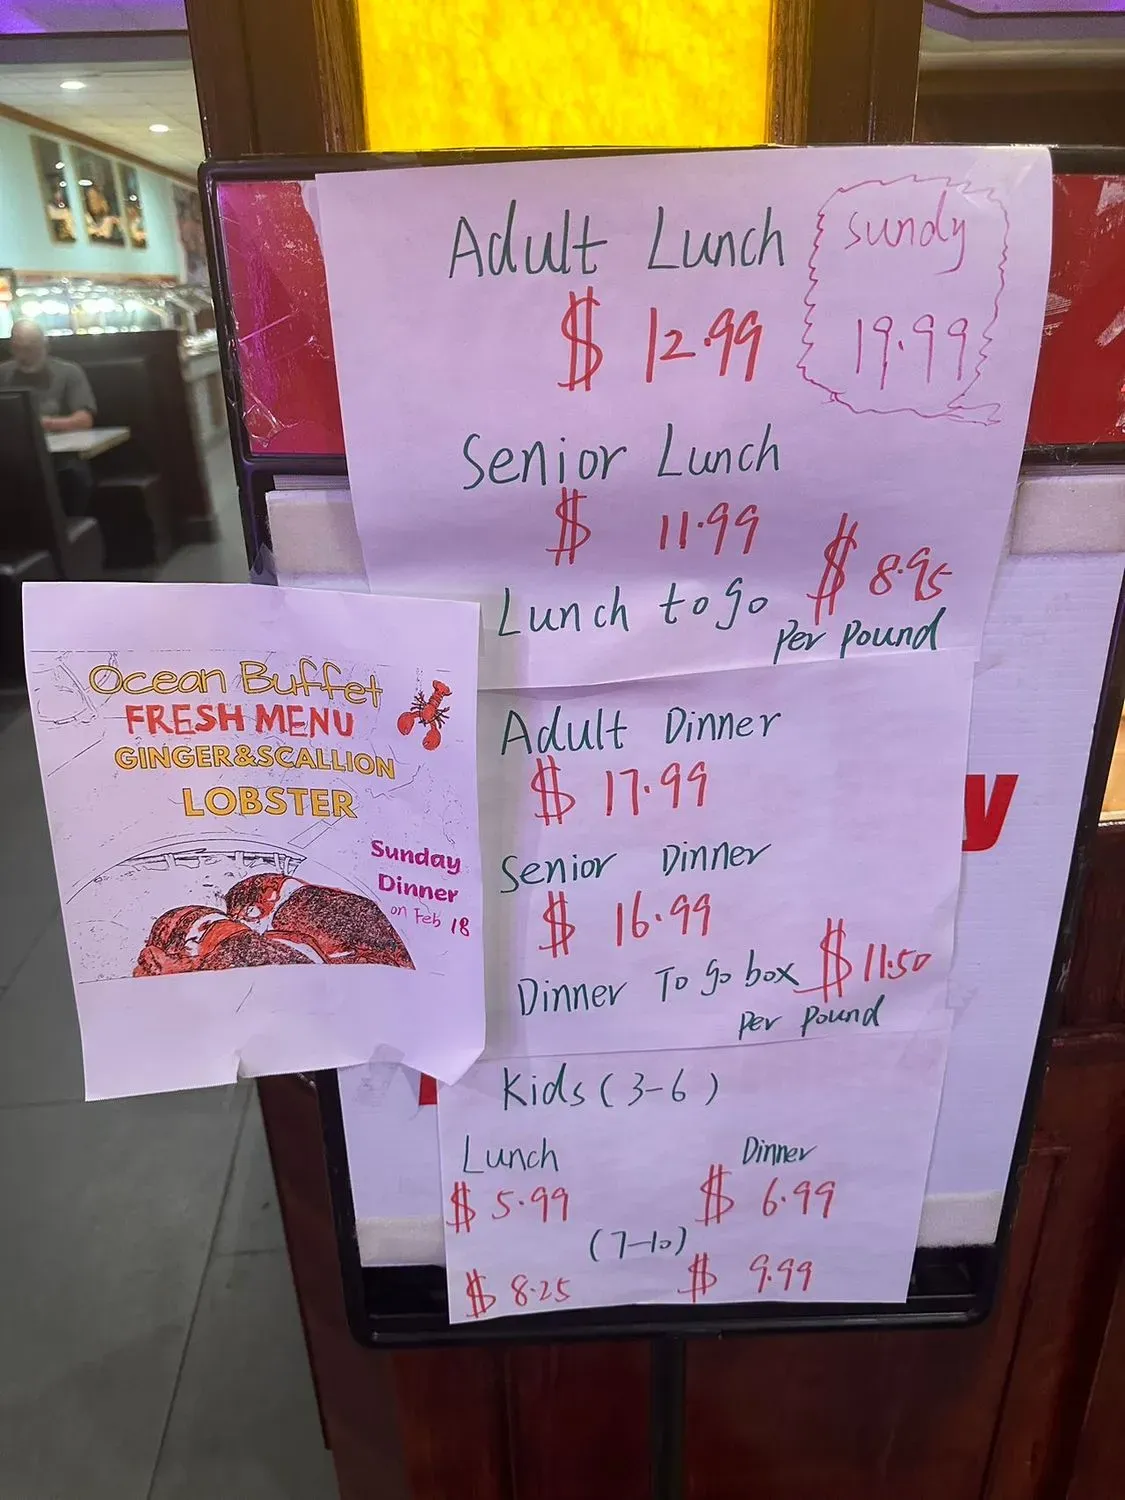 Adult Lunch
$ 12.99
sundy
19.99
Senior Lunch
$ 11.99
Lunch to go $ 8.95
per pound
Adult Dinner
$ 17.99
Senior Dinner
$ 16.99
Dinner To go box $ 11.50
per pound
Kids (3-6)
Lunch Dinner
$ 5.99 $ 6.99
(7-10)
$ 8.25 $ 9.99
Ocean Buffet
FRESH MENU
GINGER&SCALLION
LOBSTER
Sunday
Dinner
on Feb 18
y